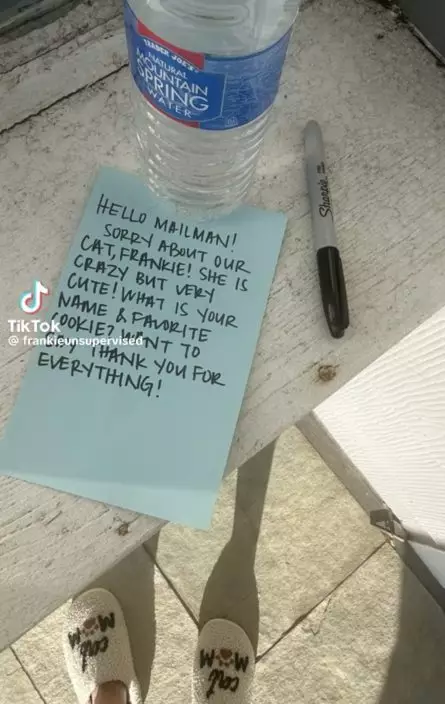 TRADER JOE'S
NATURAL
MOUNTAIN
SPRING
WATER
Sharpie
HELLO MAILMAN!
SORRY ABOUT OUR
CAT, FRANKIE! SHE IS
CRAZY BUT VERY
CUTE! WHAT IS YOUR
NAME & FAVORITE
COOKIE? WANT TO
THANK YOU FOR
EVERYTHING!
TikTok
@ frankieunsupervised
cat
MOM
cat
MOM